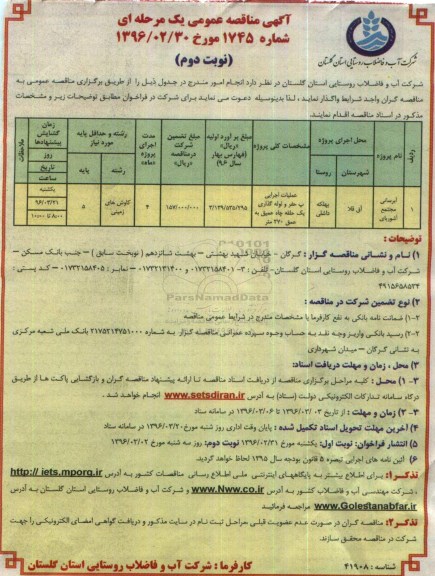 آگهی مناقصه عمومی یک مرحله ای
شماره ۱۷۴۵ مورخ ۱۳۹۶/۰۲/۳۰
(نوبت دوم)
شرکت آب و فاضلاب روستایی استان گلستان
شرکت آب و فاضلاب روستایی استان گلستان در نظر دارد انجام امور مندرج در جدول ذیل را از طریق برگزاری مناقصه عمومی به
مناقصه گران واجد شرایط واگذار نماید، لذا بدینوسیله دعوت می نماید برای شرکت در فراخوان مطابق توضیحات زیر و مشخصات
مذکور در اسناد مناقصه اقدام نمایند.
ردیف
نام پروژه
محل اجرای پروژه
شهرستان
روستا
مشخصات کلی پروژه
مبلغ برآورد اولیه «ریال» (فهارس بهای سال ۹۶)
مبلغ تضمین شرکت درمناقصه «ریال»
مدت اجرای پروژه «ماه»
رشته و حداقل پایه مورد نیاز
رشته
پایه
زمان گشایش پیشنهادها
روز
تاریخ
ساعت
ملاحظات
۱
آبرسانی مجتمع
آق قلا
عملیات اجرایی
حفر و لوله گذاری
یک حلقه چاه عمیق به
عمق ۲۷۰ متر
۳/۱۳۹/۵۳۵/۲۹۵
۱۵۷/۰۰۰/۰۰۰
۴
کاوش های زمینی
۵
یکشنبه
۹۶/۰۳/۲۱
توضیحات :
۱) نام و نشانی مناقصه گزار : گرگان - خیابان شهید بهشتی - بهشت شانزدهم ( نوبخت سابق ) – جنب بانک مسکن –
شرکت آب و فاضلاب روستایی استان گلستان- تلفن : ۳- ۰۱۷۳۲۱۵۸۴۰۱ و ۰۱۷۳۲۱۳۱۴۰۰ – نمابر: ۰۱۷۳۲۱۵۸۴۰۵ – کد پستی :
۴۹۱۵۶۵۸۵۳۴
۲) نوع تضمین شرکت در مناقصه :
۱-۲) ضمانت نامه بانکی به نفع کارفرما با مشخصات مندرج در شرایط عمومی مناقصه
۲-۲) رسید بانکی واریز وجه نقد به حساب وجوه سپرده عمرانی مناقصه گزار به شماره ۲۱۷۵۲۱۴۷۵۱۰۰۰ بانک ملی شعبه مرکزی
به نشانی گرگان – میدان شهرداری
۳) محل ، زمان و مهلت دریافت اسناد:
۱- ۳) محل : کلیه مراحل برگزاری مناقصه از دریافت اسناد مناقصه تا ارائه پیشنهاد مناقصه گران و بازگشایی پاکت ها از طریق
درگاه سامانه تدارکات الکترونیکی دولت (ستاد) به آدرس www.setsdiran.ir انجام خواهد شد .
۲- ۳) زمان و مهلت : از تاریخ ۱۳۹۶/۰۳/۰۲ تا ۱۳۹۶/۰۳/۰۶ در سامانه ستاد
۴) آخرین مهلت تحویل اسناد تکمیل شده : پایان وقت اداری روز شنبه مورخ ۱۳۹۶/۰۳/۲۰ در سامانه ستاد
۵) انتشار فراخوان: نوبت اول: یکشنبه مورخ ۱۳۹۶/۰۲/۳۱ نوبت دوم: روز سه شنبه مورخ ۱۳۹۶/۰۳/۰۲
۶) آئین نامه های اجرایی تبصره ۵ قانون بودجه سال ۱۳۹۵ لحاظ خواهد گردید.
تذکر۱: برای اطلاع بیشتر به پایگاههای اینترنتی ملی اطلاع رسانی مناقصات کشور به آدرس http:// iets.mporg.ir
، شرکت مهندسی آب و فاضلاب کشور به آدرس www.Nww.co.ir و شرکت آب و فاضلاب روستایی استان گلستان به آدرس
www.Golestanabfar.ir مراجعه فرمائید
تذکر۲: مناقصه گران در صورت عدم عضویت قبلی ،مراحل ثبت نام در سایت مذکور و دریافت گواهی امضای الکترونیکی را جهت
شرکت در مناقصه محقق سازند.
کارفرما : شرکت آب و فاضلاب روستایی استان گلستان
شناسه : ۴۱۹۰۸
ParsNamadData